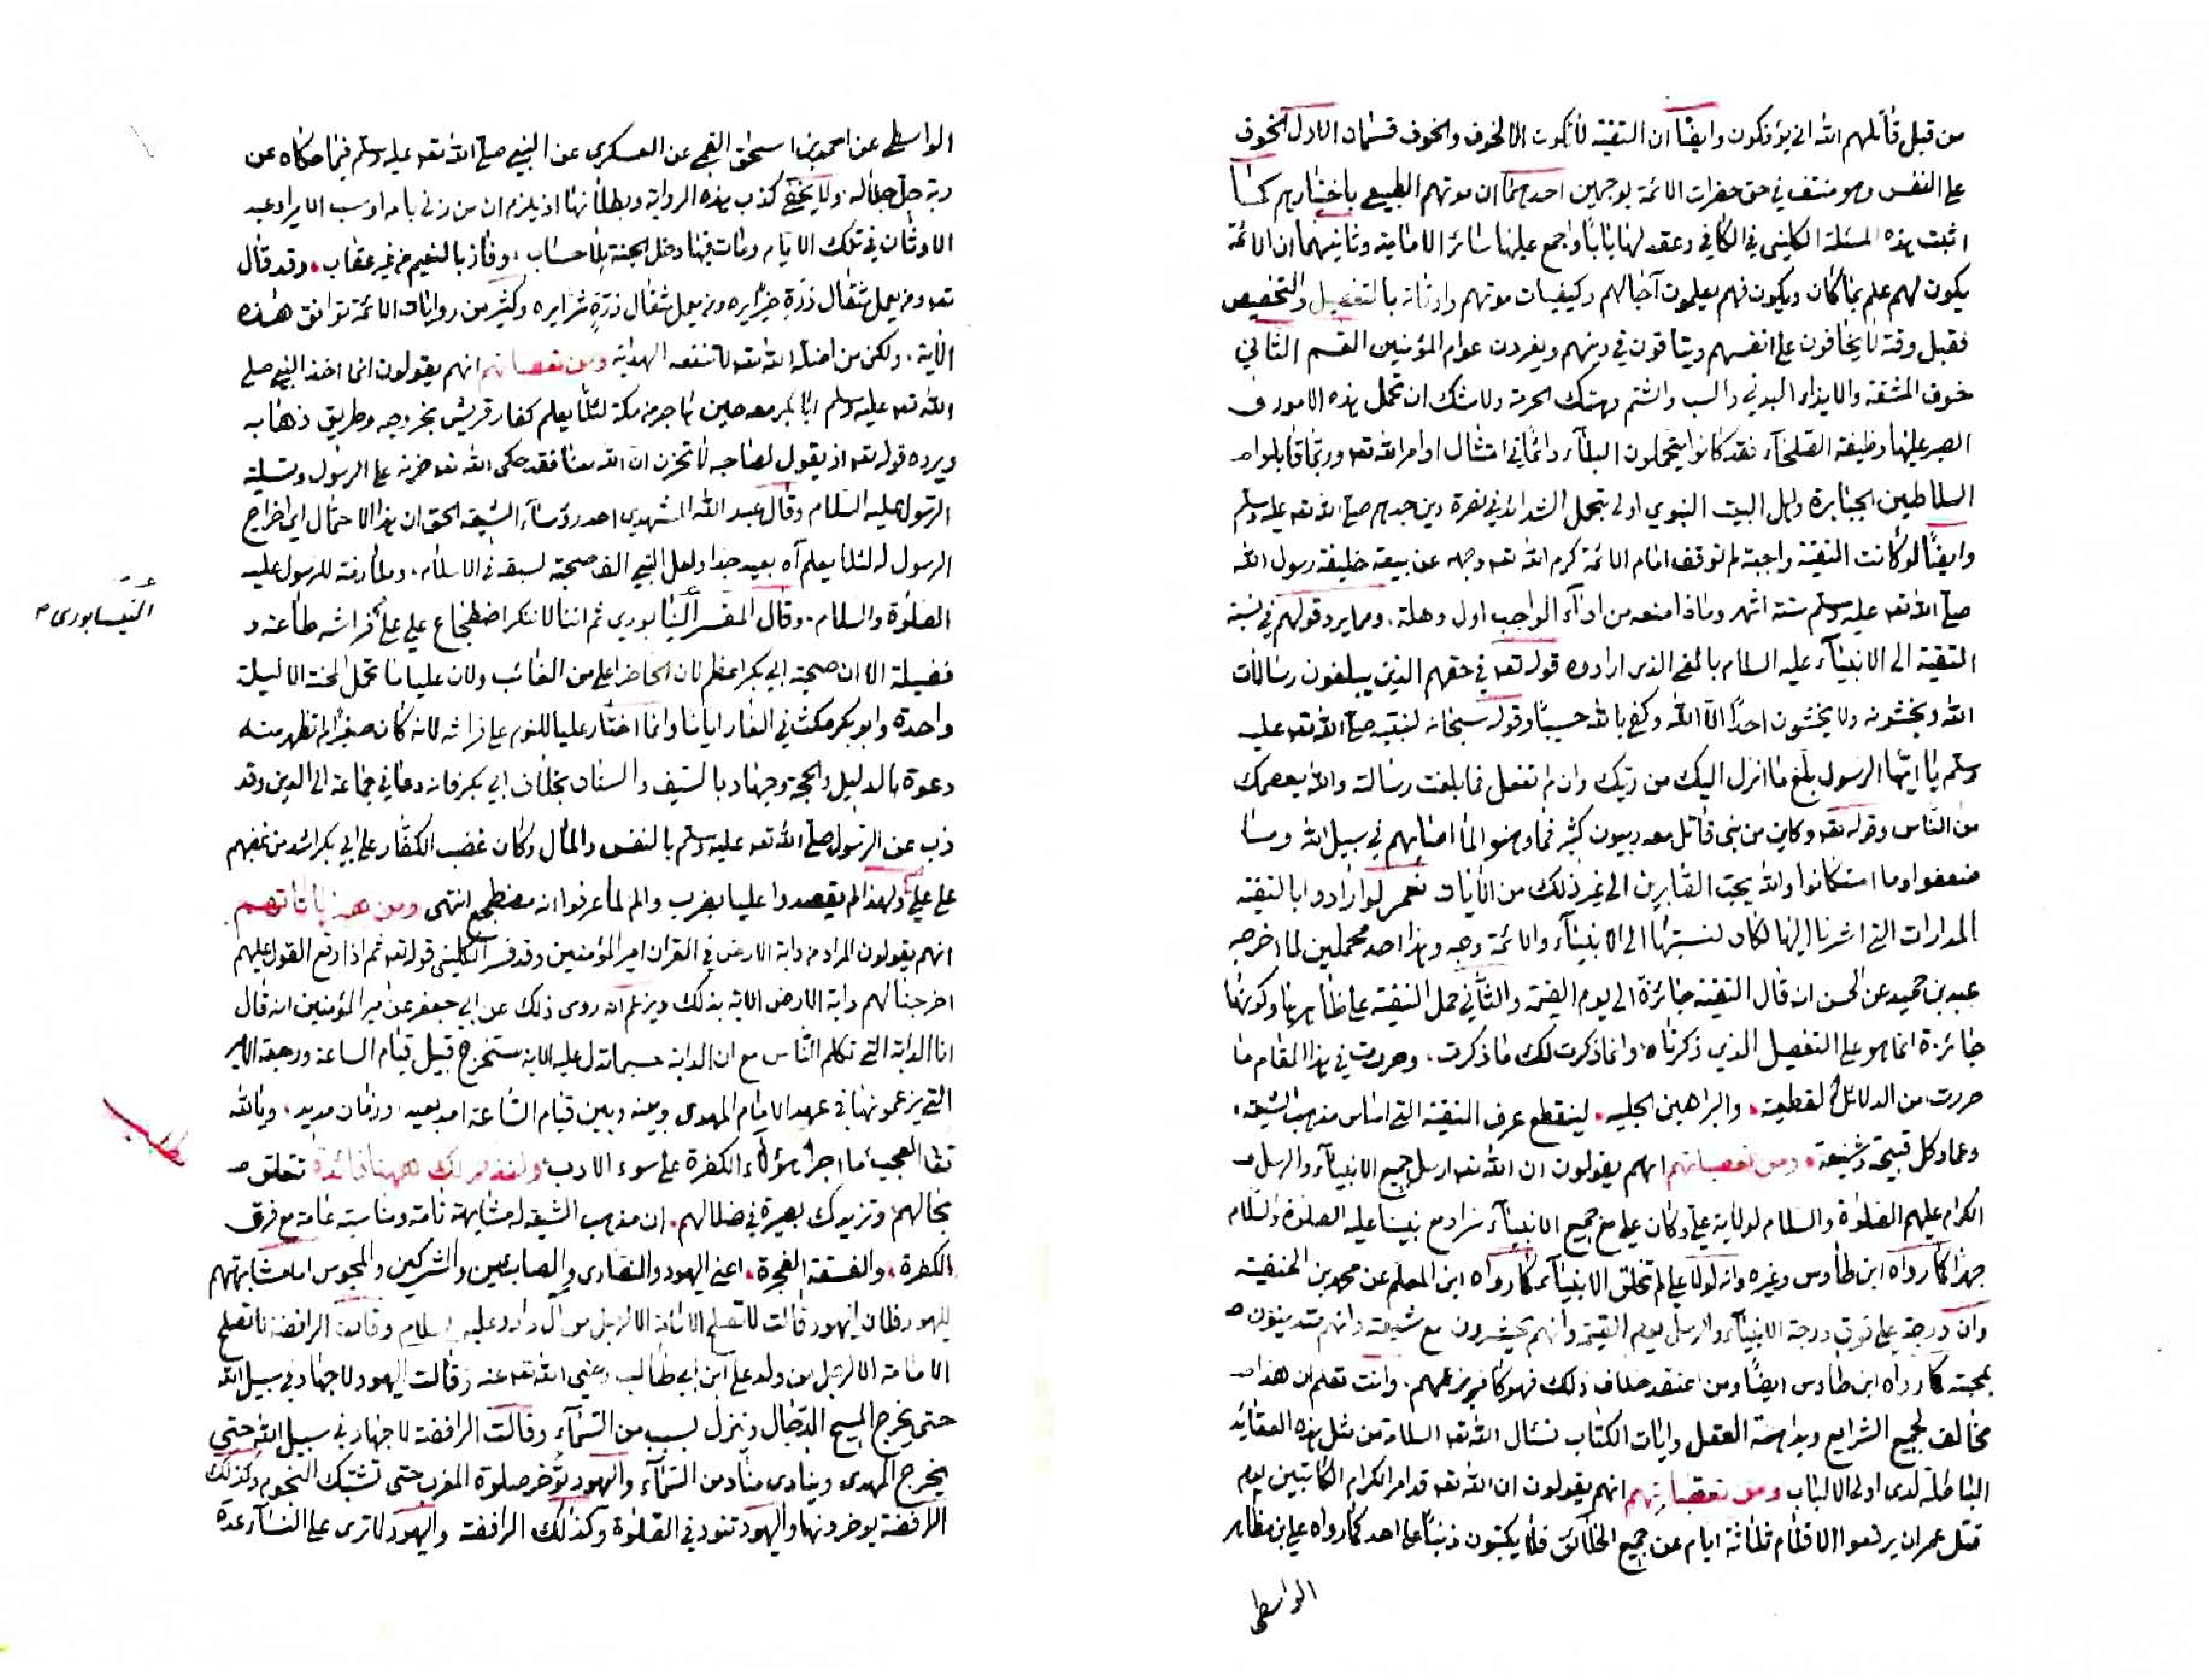 من قبل قاتلهم الله انى يؤفكون وايضا ان التقية لا تكون الا لخوف والخوف قسمان الاول الخوف
على النفس وهو منتف في حق حضرات الائمة بوجهين احدهما ان موتهم الطبيعي باختيارهم كما
اثبت هذه المسئلة الكليني في الكافي وعقد لها بابا واجمع عليها سائر الامامية وثانيهما ان الائمة
يكون لهم علم بما كان ويكون فهم يعلمون آجالهم وكيفيات موتهم واوقاته بالتفصيل والتخصيص
فقبل وقته لا يخافون على انفسهم ويتاقون في دينهم ويغرون عوام المؤمنين القسم الثاني
خوف المشقة والايذاء البدني والسب والشتم وهتك الحرمة ولا شك ان تحمل هذه الامور و
الصبر عليها وظيفة الصلحآء فقد كانوا يتحملون البلآء دائما في امتثال اوامر الله تعه وربما قابلوا
السلاطين الجبابرة واهل البيت النبوي اولى بتحمل الشدائد في نصرة دين جدهم صلى الله تعه عليه وسلم
وايضا لو كانت التقية واجبة لم توقف امام الائمة كرم الله تعه وجهه عن بيعة خليفة رسول الله
صلى الله تعه عليه وسلم ستة اشهر وماذا منعه من ادآء الواجب اول وهلة . ومما يرد قولهم في نسبة
التقية الى الانبيآء عليه السلام بالمعنى الذي ارادوه قوله تعه في حقهم الذين يبلغون رسالات
الله ويخشونه ولا يخشون احدا الا الله وكفى بالله حسيبا وقوله سبحانه لنبيه صلى الله تعه عليه
وسلم يا ايها الرسول بلغ ما انزل اليك من ربك وان لم تفعل فما بلغت رسالته والله يعصمك
من الناس وقوله تعه وكاين من نبي قاتل معه ربيون كثير فما وهنوا لما اصابهم في سبيل الله وما
ضعفوا وما استكانوا والله يحب الصابرين الى غير ذلك من الآيات نعم لو ارادوا بالتقية
المدارات التي اشرنا اليها لكان لنسبتها الى الانبيآء والائمة وجه وهذا احد محملين لما اخرجه
عبد بن حميد عن الحسن انه قال التقية جائزة الى يوم القيمة والثاني حمل التقية على ظاهرها وكونها
جائزة انما هو على التفصيل الذي ذكرناه وانما ذكرت لك ما ذكرت . وحررت في هذا المقام ما
حررت من الدلائل القطعية . والبراهين الجلية . لينقطع عرق التقية التي اساس مذهب الشيعة .
وعماد كل قبيحة وشنيعة . ومن تعصباتهم انهم يقولون ان الله تعه ارسل جميع الانبيآء والرسل
الكرام عليهم الصلوة والسلام لولاية علي وكان علي مع جميع الانبيآء سرا ومع نبينا عليه الصلوة والسلام
جهرا كما رواه ابن طاوس وغيره وانه لولا علي لم تخلق الانبيآء كما رواه ابن المعلم عن محمد بن الحنفية
وان درجة علي فوق درجة الانبيآء والرسل يوم القيمة وانهم يحشرون مع شيعته وانهم متدينون
بمحبته كما رواه ابن طاوس ايضا ومن اعتقد خلاف ذلك فهو كافر بزعمهم . وانت تعلم ان هذا
مخالف لجميع الشرايع وبداهة العقل وايات الكتاب نسأل الله تعه السلامة من مثل هذه العقائد
الباطلة لدى اولى الالباب ومن تعصباتهم انهم يقولون ان الله تعه قد امر الكرام الكاتبين يوم
قتل عمر ان يرفعوا الاقلام ثلاثة ايام عن جميع الخلائق فلا يكتبون ذنبا على احد كما رواه علي بن مظاهر
الواسطي
الواسطي عن احمد بن اسحق القمي عن العسكري عن النبي صلى الله تعه عليه وسلم فيما حكاه عن
ربه جل جلاله . ولا يخفى كذب هذه الرواية وبطلانها اذ يلزم ان من زنى بامه او سب الامير او عبد
الاوثان في تلك الايام ومات فيها دخل الجنة بلا حساب . وفاز بالنعيم من غير عقاب . وقد قال
تعه ومن يعمل مثقال ذرة خيرا يره ومن يعمل مثقال ذرة شرا يره وكثير من روايات الائمة توافق هذه
الآية . ولكن من اضله الله تعه لا تنفعه الهداية ومن تعصباتهم انهم يقولون انما اخذ النبي صلى
الله تعه عليه وسلم ابا بكر معه حين هاجر من مكة لئلا يعلم كفار قريش بخروجه وطريق ذهابه
ويرده قوله تعه اذ يقول لصاحبه لا تحزن ان الله معنا فقد حكى الله تعه حزنه على الرسول وتسلية
الرسول عليه السلام وقال عبد الله المشهدي احد رؤسآء الشيعة الحق ان هذا الاحتمال اي اخراج
الرسول له لئلا يعلم آه بعيد جدا ولعل النبي الف صحبته لسبقه في الاسلام . وملازمة للرسول عليه
الصلوة والسلام . وقال المفسر النيسابوري ثم اننا لا ننكر اضطجاع علي على فراشه طاعة و
فضيلة الا ان صحبة ابي بكر اعظم لان الحاضر اعلى من الغائب ولان عليا ما تحمل المحنة الا ليلة
واحدة وابو بكر مكث في الغار اياما وانما اختار عليا للنوم على فراشه لانه كان صغيرا لم تظهر منه
دعوة بالدليل والحجة وجهاد بالسيف والسنان بخلاف ابي بكر فانه دعا في جماعة الى الدين وقد
ذب عن الرسول صلى الله تعه عليه وسلم بالنفس والمال وكان غضب الكفار على ابي بكر اشد من غضبهم
على علي ولهذا لم يقصدوا عليا بضرب والم لما عرفوا انه مضطجع انتهى ومن هذياناتهم
انهم يقولون المراد من دابة الارض في القران امير المؤمنين وقد فسر الكليني قوله تعه ثم اذا وقع القول عليهم
اخرجنا لهم دابة الارض الاية بذلك ويزعم انه روى ذلك عن ابي جعفر عن امير المؤمنين انه قال
انا الدابة التي تكلم الناس مع ان الدابة حسبما تدل عليه الاية ستخرج قبيل قيام الساعة ورجعة الامير
التي يزعمونها في عهد الامام المهدي وبينه وبين قيام الساعة امد بعيد . وزمان مديد . وبالله
تعا العجب ما اجرأ هؤلآء الكفرة على سوء الادب ولنذكر لك ههنا فائدة تتعلق
بحالهم وتزيدك بصيرة في ضلالهم . ان مذهب الشيعة له مشابهة تامة ومناسبة عامة مع فرق
الكفرة . والفسقة الفجرة . اعني اليهود والنصارى والصابئين والمشركين والمجوس اما مشابهتهم
لليهود فلان اليهود قالت لا تصلح الامامة الا لرجل من آل داود عليه السلام وقالت الرافضة لا تصلح
الامامة الا لرجل من ولد علي ابن ابي طالب رضي الله تعه عنه وقالت اليهود لا جهاد في سبيل الله
حتى يخرج المسيح الدجال وينزل بسبب من السمآء وقالت الرافضة لا جهاد في سبيل الله حتى
يخرج المهدي وينادى مناد من السمآء واليهود تؤخر صلوة المغرب حتى تشتبك النجوم وكذلك
الرافضة يوخرونها واليهود تنود في الصلوة وكذلك الرافضة واليهود لا ترى على النسآء عدة
النيسابوري
مطلب